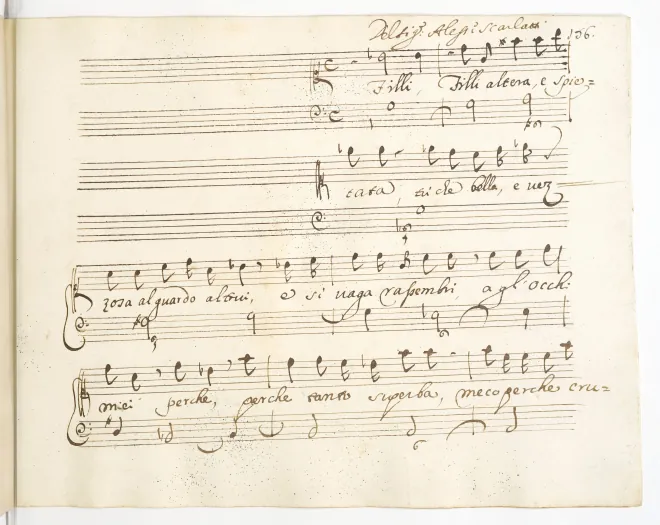 Del Sig.r Aless.o Scarlatti 136.
Filli, Filli altera, e spie=
tata, tu che bella, e vez
zosa al guardo altrui, e si vaga rassembri, a gl'occhi
miei perche, perche tanto superba, meco perche cru=